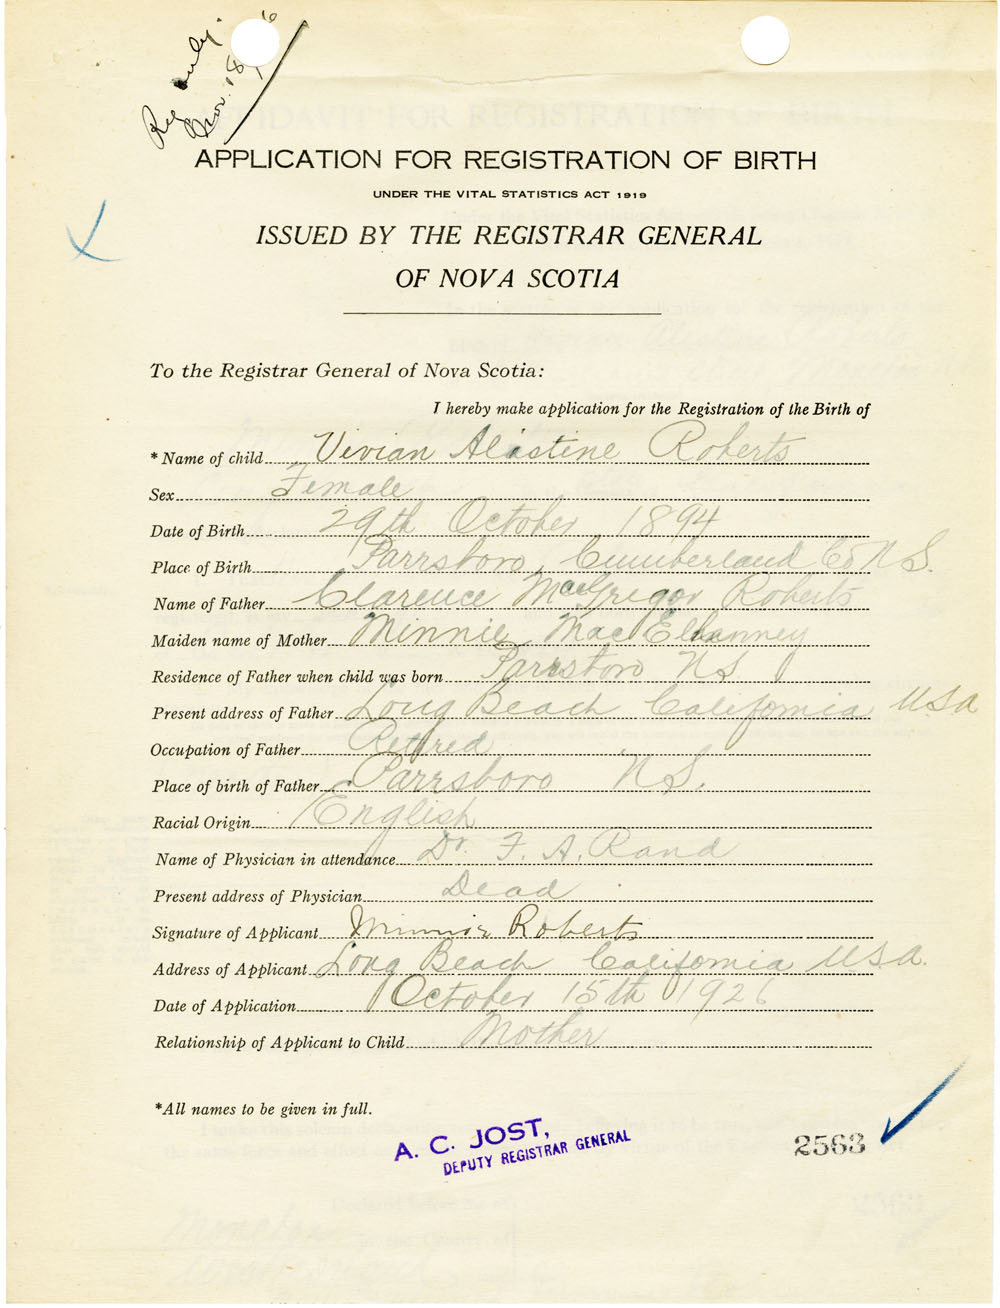 Reg only.
Nov. 18
APPLICATION FOR REGISTRATION OF BIRTH
UNDER THE VITAL STATISTICS ACT 1919
ISSUED BY THE REGISTRAR GENERAL
OF NOVA SCOTIA
To the Registrar General of Nova Scotia:
I hereby make application for the Registration of the Birth of
* Name of child Vivian Alastine Roberts
Sex Female
Date of Birth 29th October 1894
Place of Birth Parrsboro, Cumberland Co N.S.
Name of Father Clarence MacGregor Roberts
Maiden name of Mother Minnie MacElhanney
Residence of Father when child was born Parrsboro NS
Present address of Father Long Beach California USA
Occupation of Father Retired
Place of birth of Father Parrsboro N.S.
Racial Origin English
Name of Physician in attendance Dr. F. A. Rand
Present address of Physician Dead
Signature of Applicant Minnie Roberts
Address of Applicant Long Beach California U.S.A.
Date of Application October 15th 1926
Relationship of Applicant to Child Mother
*All names to be given in full.
A. C. JOST,
DEPUTY REGISTRAR GENERAL
2563